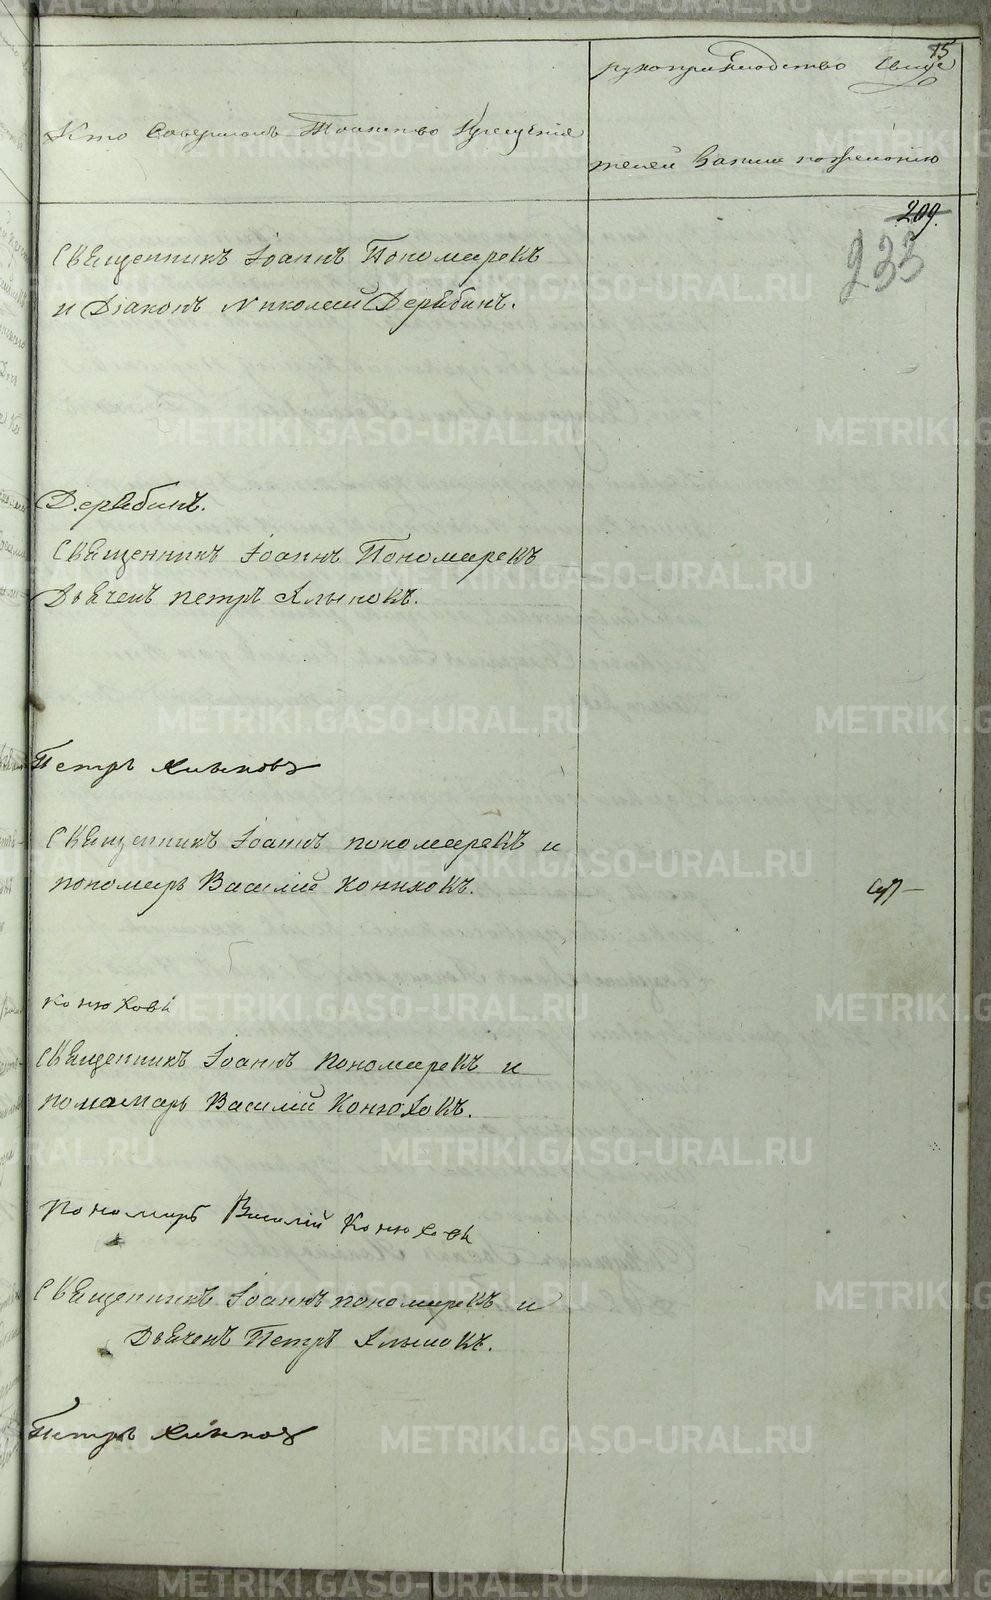 15
Кто Совершалъ Таинство Крещенія
рукоприкладство Свидѣ
телей Записи по желанію
209.
233
Священникъ Іоаннъ Пономаревъ
и Діаконъ Николай Дерябинъ.
Дерябинъ.
Священникъ Іоаннъ Пономаревъ
Дьячекъ Петръ
Петръ
Священникъ Іоаннъ пономаревъ и
пономарь Василій Конюховъ.
Конюховъ
Священникъ Іоаннъ пономаревъ и
пономарь Василій Конюховъ.
Пономарь Василій Конюховъ
Священникъ Іоаннъ пономаревъ и
Дьячекъ Петръ
Петръ
METRIKI.GASO-URAL.RU